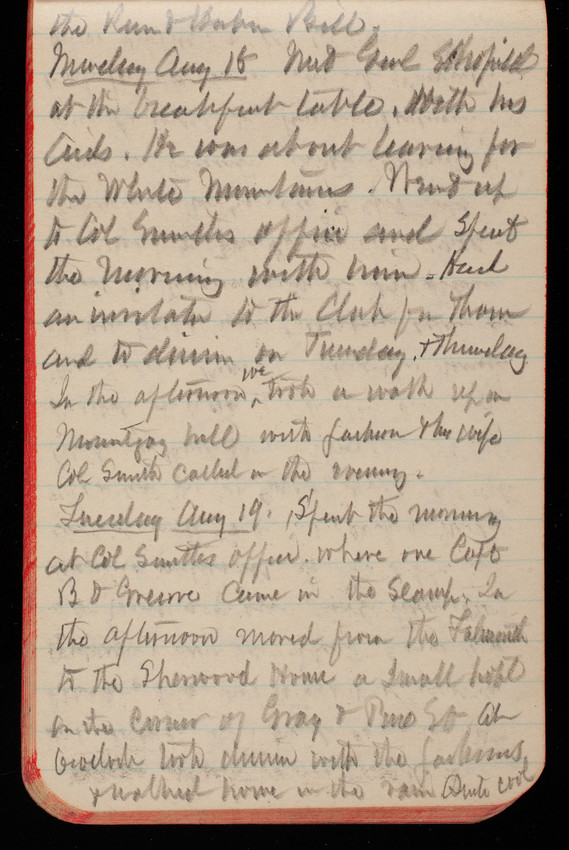 the River & Harbor Bill.
Monday Aug 18 Met Genl Schofield
at the breakfast table. With his
Aids. He was about leaving for
the White Mountains. Went up
to Col Smiths office and Spent
the Morning with him. Had
an invitation to the Club for Thom
and to dinner on Tuesday, & Thursday
In the afternoon we, took a walk up on
Mountjoy hill with Jackson & his wife
Col Smith called in the evening.
Tuesday Aug 19. Spent the morning
at Col Smiths office. where one Capt
B & Greene Came in the Steamp. In
the afternoon moved from the Falmouth
to the Sherwood House a Small hotel
on the Corner of Gray & Park St At
6 oclock took dinner with the Jacksons,
& walked home in the rain Quite cool